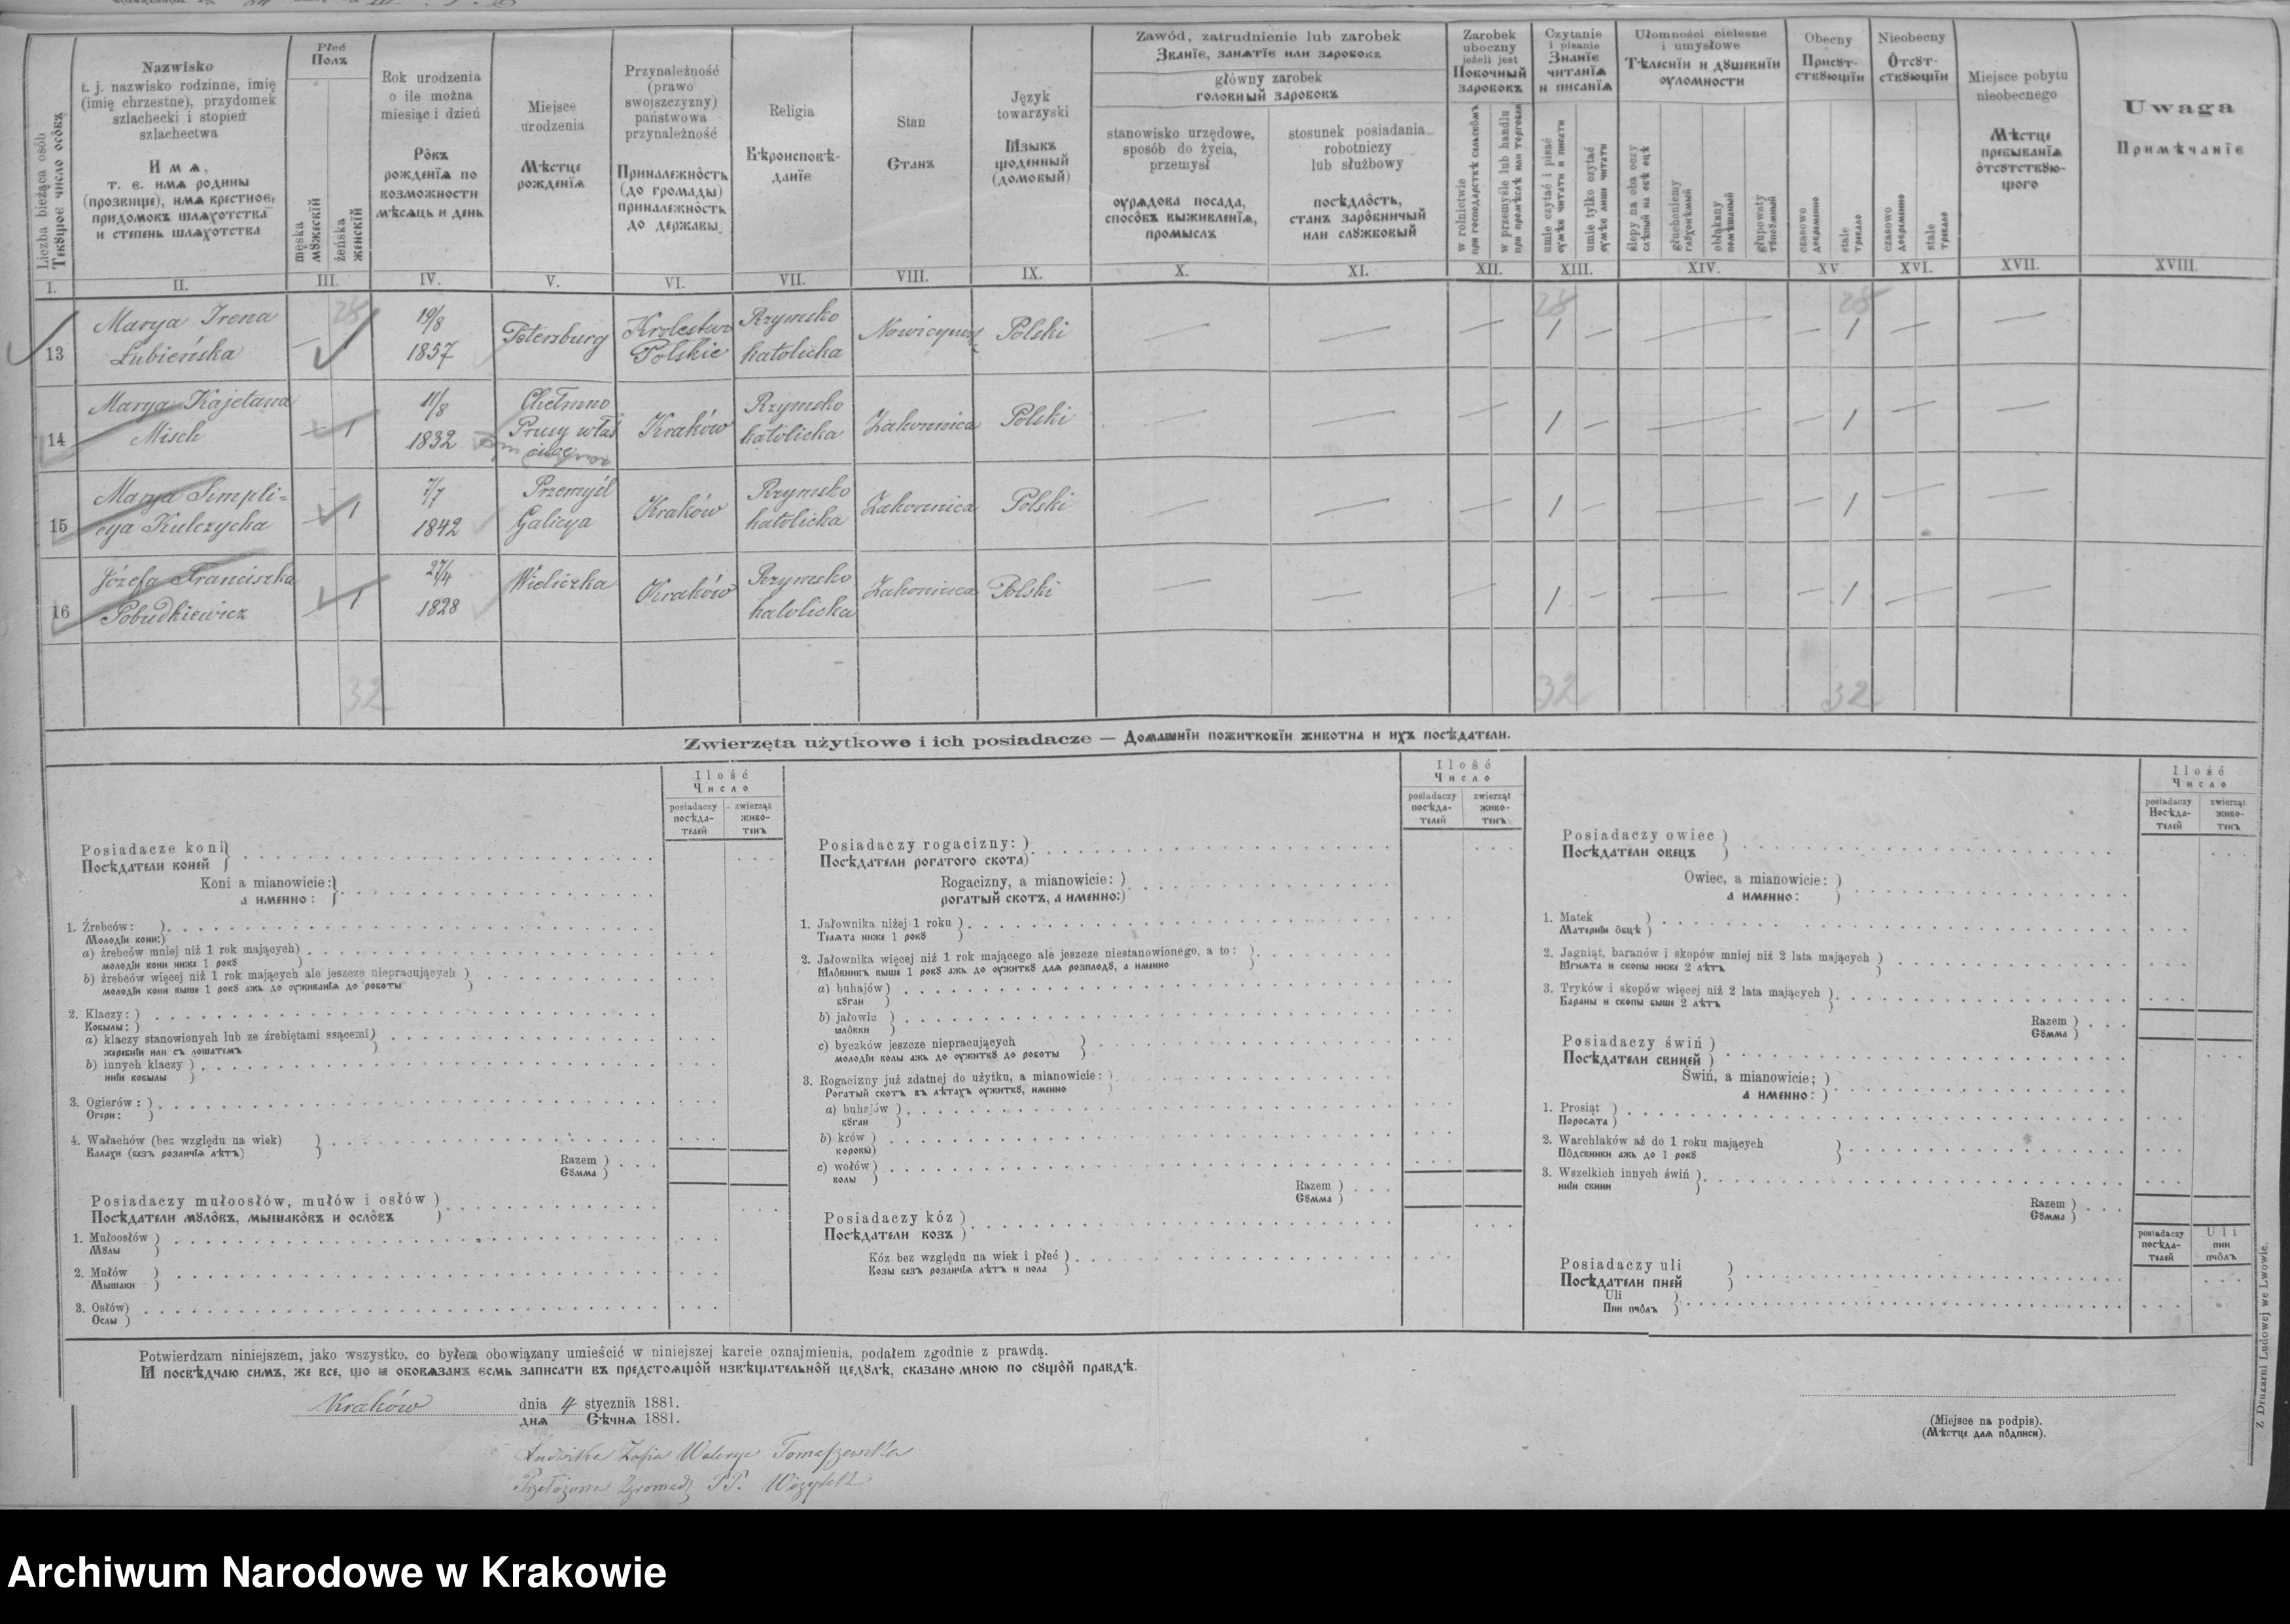 Liczba bieżąca osób
Текꙋщое число осôбъ
Nazwisko
t. j. nazwisko rodzinne, imię
(imię chrzestne), przydomek
szlachecki i stopień
szlachectwa
Имѧ,
т. е. имѧ родины
(прозвище), имѧ крестное,
придомокъ шлѧхотства
и степень шлѧхотства
Płeć
Полъ
męska
мꙋжескїй
żeńska
женскїй
Rok urodzenia
o ile można
miesiąc i dzień
Рôкъ
рожденїѧ по
возможности
мѣсѧць и день
Miejsce
urodzenia
Мѣстце
рожденїѧ
Przynależność
(prawo
swojszczyzny)
państwowa
przynależność
Приналежнôсть
(до громады)
приналежнôсть
до державы
Religia
Вѣроисповѣ-
данїе
Stan
Станъ
Język
towarzyski
Ꙗзыкъ
щоденный
(домовый)
Zawód, zatrudnienie lub zarobek
Званїе, занѧтїе или заробокъ
główny zarobek
головный заробокъ
stanowisko urzędowe,
sposób do życia,
przemysł
оурѧдова посада,
способъ выживленїѧ,
промыслъ
stosunek posiadania
robotniczy
lub służbowy
посѣдлôсть,
станъ зарôбничый
или слꙋжбовый
Zarobek
uboczny
jeżeli jest
Побочный
заробокъ
w rolnictwie
при господарствѣ сельскôмъ
w przemyśle lub handlu
при промыслѣ или торговли
Czytanie
i pisanie
Знанїе
читанїѧ
и писанїѧ
umie czytać i pisać
оумѣе читати и писати
umie tylko czytać
оумѣе лише читати
Ułomności cielesne
i umysłowe
Тѣлеснїи и дꙋшевнїи
оуломности
ślepy na oba oczy
слѣпый на обѣ очѣ
głuchoniemy
глꙋхонѣмый
obłąkany
помѣшаный
głupowaty
тꙋпоꙋмный
Obecny
Присꙋт-
ствꙋющїй
czasowo
довременно
stale
тревало
Nieobecny
Ôтсꙋт-
ствꙋющїй
czasowo
довременно
stale
тревало
Miejsce pobytu
nieobecnego
Мѣстце
пребыванїѧ
ôтсꙋтствꙋю-
щого
Uwaga
Примѣчанїе
I. II. III. IV. V. VI. VII. VIII. IX. X. XI. XII. XIII. XIV. XV. XVI. XVII. XVIII.
28 28 28
13 Marya Irena Łubieńska 1 19/8 1857 Petersburg Krolestwo Polskie Rzymsko katolicka Polski 1 1
14 Marya Kajetana Misch 1 11/8 1832 Chełmno Prusy Kraków Rzymsko katolicka Zakonnica Polski 1 1
15 Marya Simpli=cya Kulczycka 1 7/7 1842 Przemyśl Galicya Kraków Rzymsko katolicka Zakonnica Polski 1 1
16 Józefa Franciszka Pobudkiewicz 1 27/4 1828 Wieliczka Kraków Rzymsko katolicka Zakonnica Polski 1 1
32 32 32
Zwierzęta użytkowe i ich posiadacze — Домашнїи пожитковїи животна и ихъ посѣдатели.
Ilość
Число
posiadaczy
посѣда-
телей
zwierząt
живо-
тенъ
Posiadacze koni
Посѣдатели коней
Koni a mianowicie:
а именно:
1. Źrebców:
Молодїи кони:
a) źrebców mniej niż 1 rok mających
молодїи кони ниже 1 рокꙋ
b) źrebców więcej niż 1 rok mających ale jeszcze niepracujących
молодїи кони выше 1 рокꙋ ажь до оуживанїѧ до роботы
2. Klaczy:
Кобылы:
a) klaczy stanowionych lub ze źrebiętami ssącemi
жеребнїи или съ лошатемъ
b) innych klaczy
иннїи кобылы
3. Ogierów:
Огери:
4. Wałachów (bez względu na wiek)
Валахи (безъ розличїѧ лѣтъ)
Razem
Сꙋмма
Posiadaczy mułoosłów, mułów i osłów
Посѣдатели мꙋлôвъ, мышакôвъ и ослôвъ
1. Mułoosłów
Мꙋлы
2. Mułów
Мышаки
3. Osłów
Ослы
Ilość
Число
posiadaczy
посѣда-
телей
zwierząt
живо-
тенъ
Posiadaczy rogacizny:
Посѣдатели рогатого скота
Rogacizny, a mianowicie:
рогатый скотъ, а именно:
1. Jałownika niżej 1 roku
Телѧта ниже 1 рокꙋ
2. Jałownika więcej niż 1 rok mającego ale jeszcze niestanowionego, a to:
Ꙗлôвникъ выше 1 рокꙋ ажь до оужиткꙋ длѧ розплодꙋ, а именно
a) buhajów
бꙋгаи
b) jałowic
ꙗлôвки
c) byczków jeszcze niepracujących
молодїи волы ажь до оужиткꙋ до роботы
3. Rogacizny już zdatnej do użytku, a mianowicie:
Рогатый скотъ въ лѣтахъ оужиткꙋ, именно
a) buhajów
бꙋгаи
b) krów
коровы
c) wołów
волы
Razem
Сꙋмма
Posiadaczy kóz
Посѣдатели козъ
Kóz bez względu na wiek i płeć
Козы безъ розличїѧ лѣтъ и пола
Ilość
Число
posiadaczy
Посѣда-
телей
zwierząt
живо-
тенъ
Posiadaczy owiec
Посѣдатели овецъ
Owiec, a mianowicie:
а именно:
1. Matek
Матернїи ôвцѣ
2. Jagniąt, baranów i skopów mniej niż 2 lata mających
Ꙗгнѧта и скопы ниже 2 лѣтъ
3. Tryków i skopów więcej niż 2 lata mających
Бараны и скопы выше 2 лѣтъ
Razem
Сꙋмма
Posiadaczy świń
Посѣдатели свиней
Świń, a mianowicie;
а именно:
1. Prosiąt
Поросѧта
2. Warchlaków aż do 1 roku mających
Пôдсвинки ажь до 1 рокꙋ
3. Wszelkich innych świń
иннїи свини
Razem
Сꙋмма
posiadaczy
посѣда-
телей
Uli
пни
пчôлъ
Posiadaczy uli
Посѣдатели пней
Uli
Пни пчôлъ
Potwierdzam niniejszem, jako wszystko, co byłem obowiązany umieścić w niniejszej karcie oznajmienia, podałem zgodnie z prawdą.
Ꙗ посвѣдчаю симъ, же все, що ꙗ обовѧзанъ есмь записати въ предстоѧщôй извѣщательнôй цедꙋлѣ, сказано мною по сꙋщôй правдѣ.
Kraków dnia 4 stycznia 1881.
днѧ Сѣчнѧ 1881.
(Miejsce na podpis).
(Мѣстце длѧ пôдписи).
Ludwika Zofia Walerya Tomaszewska
Przełożona Zgromadz PP. Wizytek
Z Drukarni Ludowej we Lwowie.
Archiwum Narodowe w Krakowie